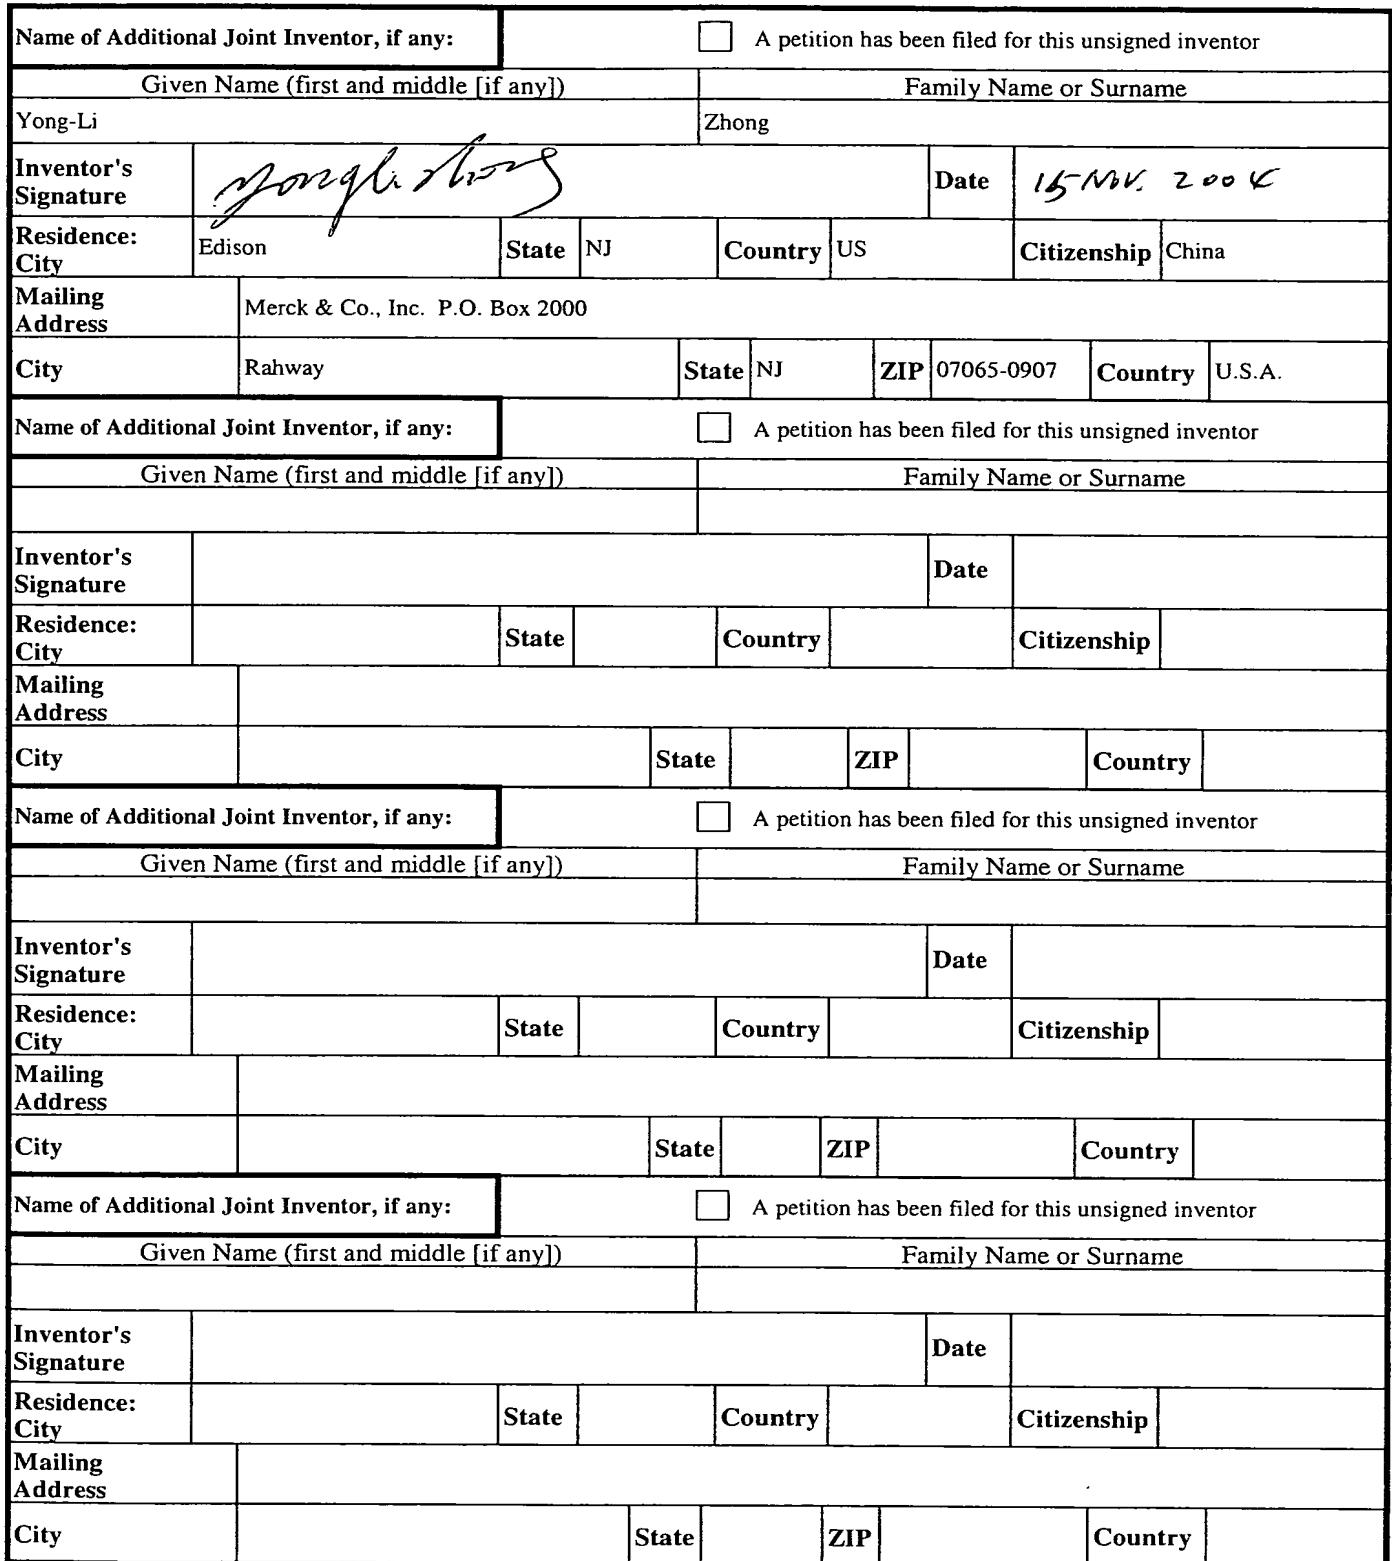 Name of Additional Joint Inventor, if any: A petition has been filed for this unsigned inventor
Given Name (first and middle [if any]) Family Name or Surname
Yong-Li Zhong
Inventor's Signature Yongli Zhong Date 15 Nov. 2004
Residence: City Edison State NJ Country US Citizenship China
Mailing Address Merck & Co., Inc. P.O. Box 2000
City Rahway State NJ ZIP 07065-0907 Country U.S.A.
Name of Additional Joint Inventor, if any: A petition has been filed for this unsigned inventor
Given Name (first and middle [if any]) Family Name or Surname
Inventor's Signature Date
Residence: City State Country Citizenship
Mailing Address
City State ZIP Country
Name of Additional Joint Inventor, if any: A petition has been filed for this unsigned inventor
Given Name (first and middle [if any]) Family Name or Surname
Inventor's Signature Date
Residence: City State Country Citizenship
Mailing Address
City State ZIP Country
Name of Additional Joint Inventor, if any: A petition has been filed for this unsigned inventor
Given Name (first and middle [if any]) Family Name or Surname
Inventor's Signature Date
Residence: City State Country Citizenship
Mailing Address
City State ZIP Country